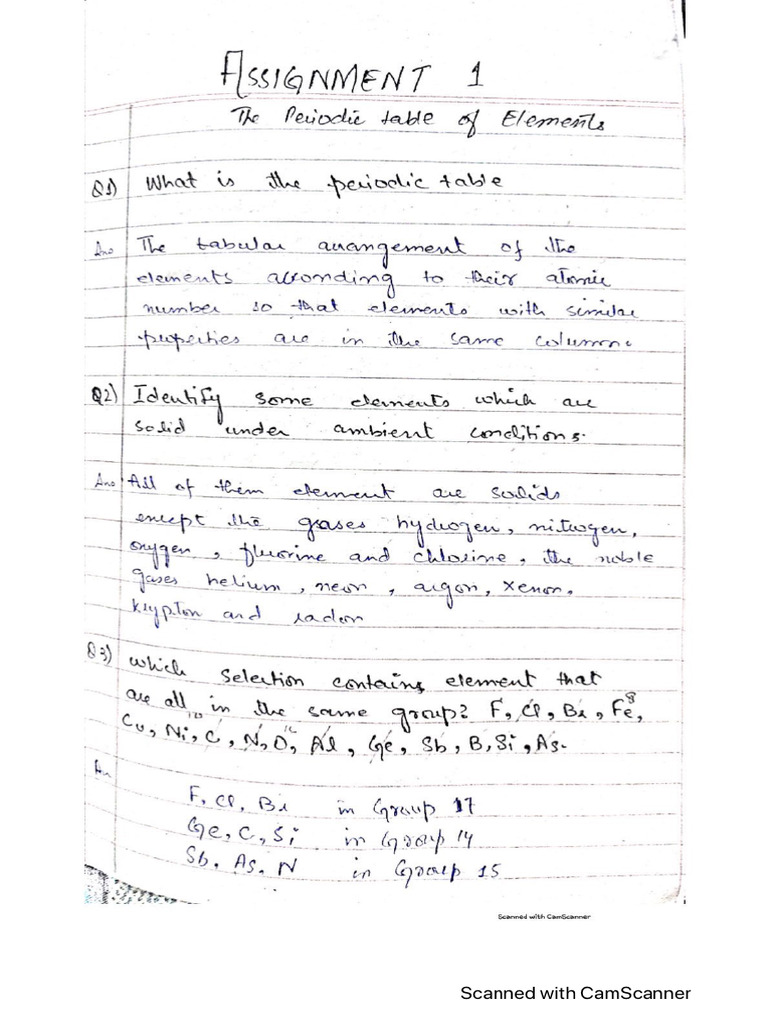 ASSIGNMENT 1
The Periodic table of Elements
Q1) What is the periodic table
Ans The tabular arrangement of the
elements according to their atomic
number so that elements with similar
properties are in the same column.
Q2) Identify some elements which are
solid under ambient conditions.
Ans All of them element are solids
except the gases hydrogen, nitrogen,
oxygen, fluorine and chlorine, the noble
gases helium, neon, argon, xenon,
krypton and radon
Q3) which selection contains element that
are all in the same group? F, Cl, Br, Fe,
Cu, Ni, C, N, O, Al, Ge, Sb, B, Si, As.
An
F, Cl, Br in Group 17
Ge, C, Si in Group 14
Sb, As, N in Group 15
Scanned with CamScanner
Scanned with CamScanner